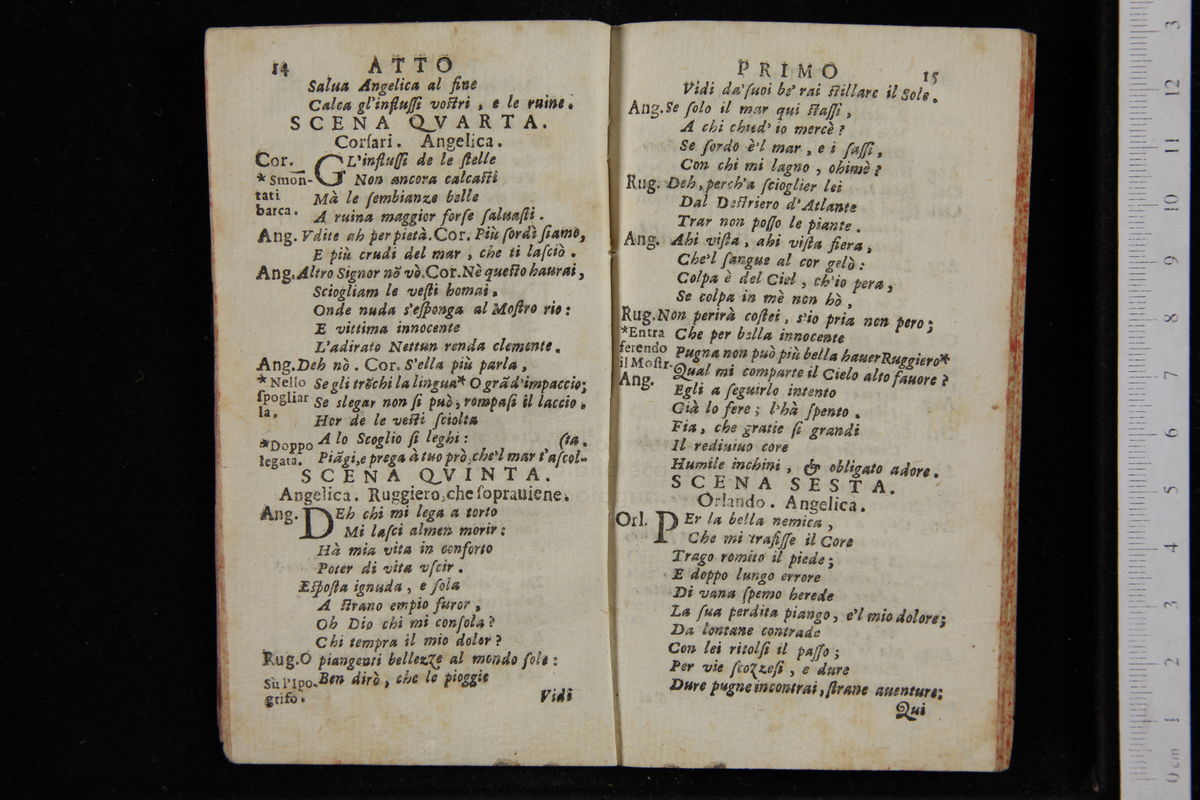 14 ATTO
Salua Angelica al fine
Calca gl'influſſi voſtri , e le ruine.
SCENA QVARTA.
Corſari. Angelica.
Cor. GL'influſſi de le ſtelle
*Smon- Non ancora calcaſti
tati Mà le ſembianze belle
barca. A ruina maggior forſe ſaluaſti.
Ang. Vdite ah per pietà. Cor. Più ſordi ſiamo,
E più crudi del mar , che ti laſciò .
Ang. Altro Signor nõ vò. Cor. Nè queſto haurai,
Sciogliam le veſti homai,
Onde nuda s'eſponga al Moſtro rio:
E vittima innocente
L'adirato Nettun renda clemente.
Ang. Deh nò . Cor. S'ella più parla ,
*Nello Se gli trõchi la lingua* O grãd'impaccio;
ſpogliar Se slegar non ſi può, rompaſi il laccio.
la. Hor de le veſti ſciolta
*Doppo A lo Scoglio ſi leghi: (ta.
legata. Piãgi, e prega à tuo prò, che'l mar t'aſcol-
SCENA QVINTA.
Angelica. Ruggiero, che ſoprauiene.
Ang. DEh chi mi lega a torto
Mi laſci almen morir:
Hà mia vita in conforto
Poter di vita vſcir .
Eſpoſta ignuda , e ſola
A ſtrano empio furor ,
Oh Dio chi mi conſola?
Chi tempra il mio dolor?
Rug. O piangenti bellezze al mondo ſole:
Sù l'Ipo- Ben dirò , che le pioggie
grifo. Vidi
PRIMO 15
Vidi da' ſuoi be' rai ſtillare il Sole.
Ang. Se ſolo il mar qui ſtaſſi ,
A chi chied' io mercè?
Se ſordo è'l mar , e i ſaſſi,
Con chi mi lagno , ohimè?
Rug. Deh, perch'a ſcioglier lei
Dal Deſtriero d'Atlante
Trar non poſſo le piante.
Ang. Ahi viſta, ahi viſta fiera,
Che'l ſangue al cor gelò:
Colpa è del Ciel , ch'io pera,
Se colpa in mè non hò,
Rug. Non perirà coſtei , s'io pria non pero;
*Entra Che per bella innocente
ferendo Pugna non può più bella hauer Ruggiero*
il Moſtr. Qual mi comparte il Cielo alto fauore?
Ang. Egli a ſeguirlo intento
Già lo fere; l'hà ſpento .
Fia, che gratie ſi grandi
Il rediuiuo core
Humile inchini , & obligato adore.
SCENA SESTA.
Orlando. Angelica.
Orl. PEr la bella nemica ,
Che mi trafiſſe il Core
Trago romito il piede;
E doppo lungo errore
Di vana ſpeme herede
La ſua perdita piango, e'l mio dolore;
Da lontane contrade
Con lei ritolſi il paſſo ;
Per vie ſcozzeſi , e dure
Dure pugne incontrai, ſtrane auenture:
Qui
3
12
11
10
9
8
7
6
5
4
3
2
1
0 cm